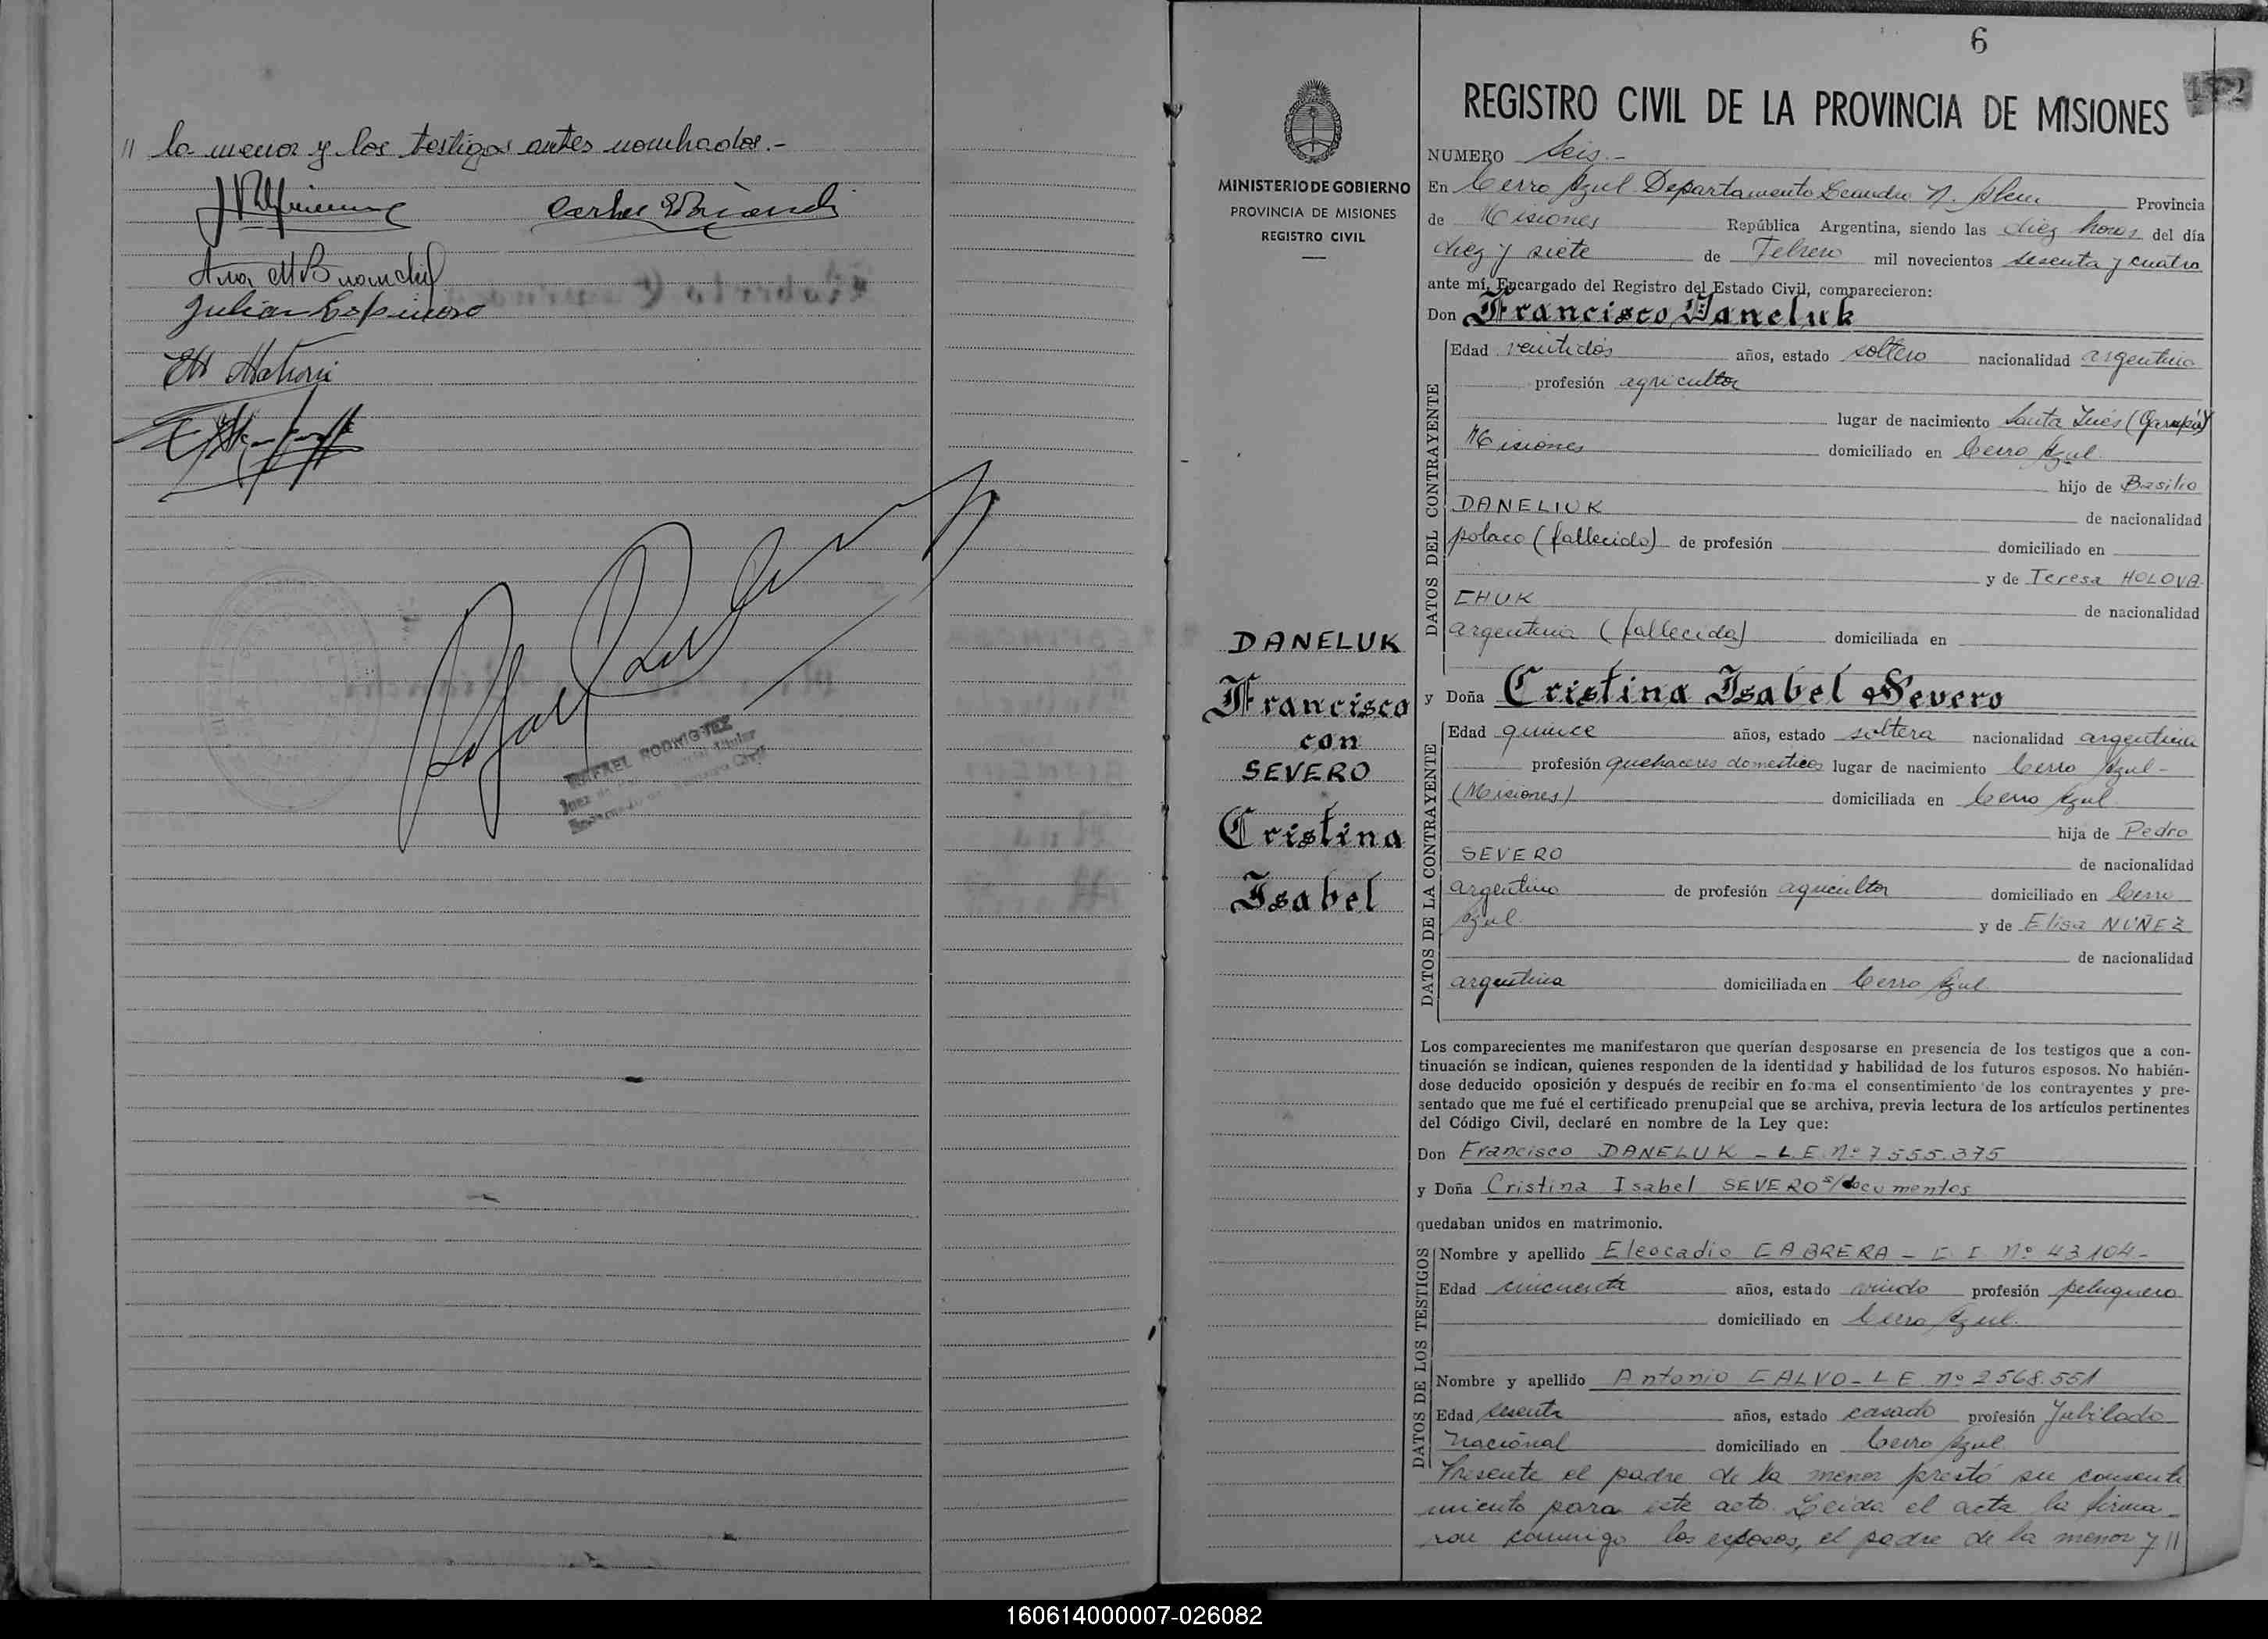 // la menor y los testigos antes nombrados.-
Julian Espinoza
RAFAEL RODRIGUEZ
6
REGISTRO CIVIL DE LA PROVINCIA DE MISIONES
MINISTERIO DE GOBIERNO
PROVINCIA DE MISIONES
REGISTRO CIVIL
DANELUK
Francisco
con
SEVERO
Cristina
Isabel
NUMERO Seis.-
En Cerro Azul Departamento Leandro N. Alem Provincia
de Misiones República Argentina, siendo las diez horas del día
diez y siete de Febrero mil novecientos sesenta y cuatro
ante mí, Encargado del Registro del Estado Civil, comparecieron:
Don Francisco Daneluk
DATOS DEL CONTRAYENTE
Edad veintidós años, estado soltero nacionalidad argentino
profesión agricultor
lugar de nacimiento Santa Inés (Garupá)
Misiones domiciliado en Cerro Azul
hijo de Basilio
DANELIUK de nacionalidad
polaco (fallecido) de profesión domiciliado en
y de Teresa HOLOVA-
CHUK de nacionalidad
argentina (fallecida) domiciliada en
y Doña Cristina Isabel Severo
DATOS DE LA CONTRAYENTE
Edad quince años, estado soltera nacionalidad argentina
profesión quehaceres domesticos lugar de nacimiento Cerro Azul-
(Misiones) domiciliada en Cerro Azul
hija de Pedro
SEVERO de nacionalidad
argentino de profesión agricultor domiciliado en Cerro
Azul y de Elisa NÚÑEZ
de nacionalidad
argentina domiciliada en Cerro Azul
Los comparecientes me manifestaron que querían desposarse en presencia de los testigos que a con-
tinuación se indican, quienes responden de la identidad y habilidad de los futuros esposos. No habién-
dose deducido oposición y después de recibir en forma el consentimiento de los contrayentes y pre-
sentado que me fué el certificado prenupcial que se archiva, previa lectura de los artículos pertinentes
del Código Civil, declaré en nombre de la Ley que:
Don Francisco DANELUK - L.E. Nº 7.555.375
y Doña Cristina Isabel SEVERO s/documentos
quedaban unidos en matrimonio.
DATOS DE LOS TESTIGOS
Nombre y apellido Eleocadio CABRERA - C. I. Nº 43.104-
Edad cincuenta años, estado viudo profesión peluquero
domiciliado en Cerro Azul
Nombre y apellido Antonio CALVO - L E Nº 2.568.551
Edad sesenta años, estado casado profesión Jubilado
Nacional domiciliado en Cerro Azul
Presente el padre de la menor prestó su consenti
miento para este acto. Leída el acta la firma-
ron conmigo los esposos, el padre de la menor y //
160614000007-026082